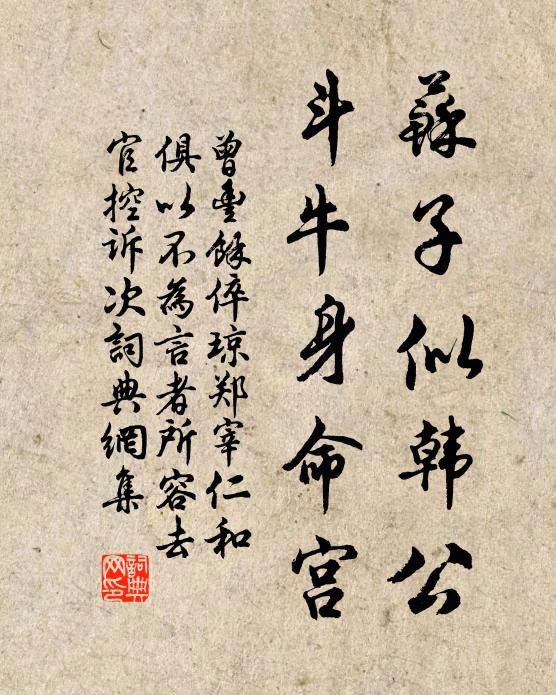 蘇子似韩公
斗牛身命宫
曾豊餘倅琼郑宰仁和
俱以不為言者所容去
官控诉次詞典網集
詞典網印